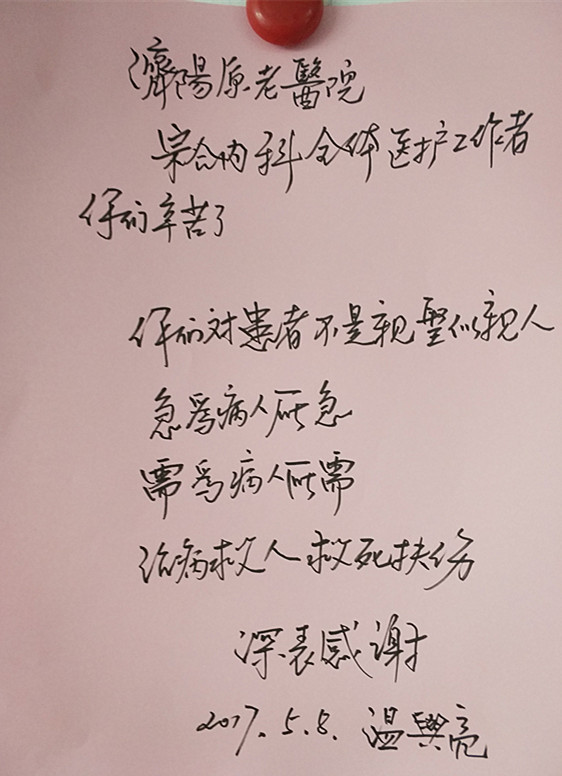 濟陽原老醫院
宗合内科全体医护工作者
你们辛苦了
你们对患者不是親聖似親人
急爲病人所急
需爲病人所需
治病救人救死扶伤
深表感谢
2017.5.8. 温興亮